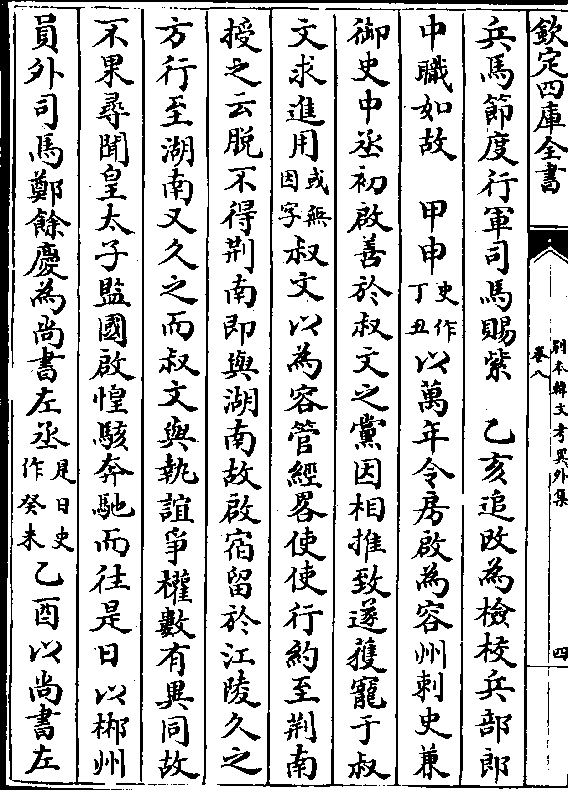 欽定四庫全書
別本韓文考異外集
卷八
四
兵馬節度行軍司馬賜紫　乙亥追改為檢校兵部郎
中職如故　甲申史作丁丑以萬年令房啟為容州刺史兼
御史中丞初啟善於叔文之黨因相推致遂獲寵于叔
文求進用或無因字叔文以為容管經畧使使行約至荆南
授之云脱不得荆南即與湖南故啟宿留於江陵久之
方行至湖南又久之而叔文與執誼爭權數有異同故
不果尋聞皇太子監國啟惶駭奔馳而往是日以郴州
員外司馬鄭餘慶為尚書左丞是日史作癸未乙酉以尚書左